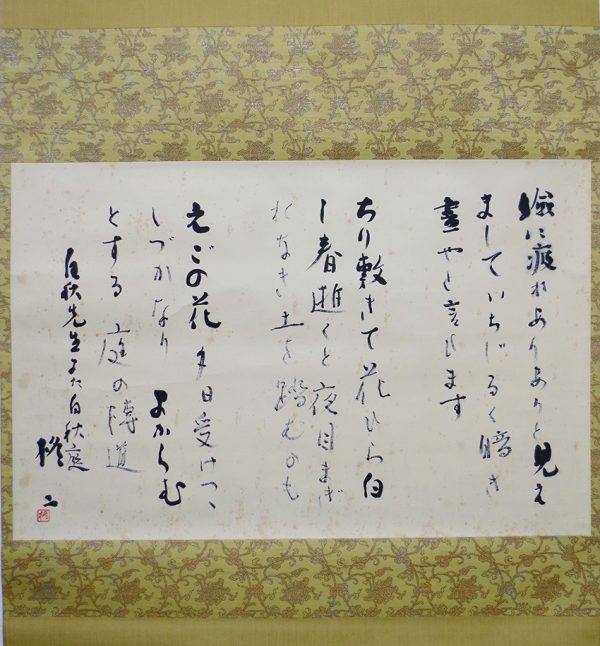 に疲れありありと見え
ましていちじるく暗き
昼やと言ひます
ちり敷きて花ひら白
し春逝くと夜目まぎ
れなき土を踏むのも
えごの花 夕日受けつゝ
しづかなり よからむ
とする 庭の
白秋先生 白秋庭
修二